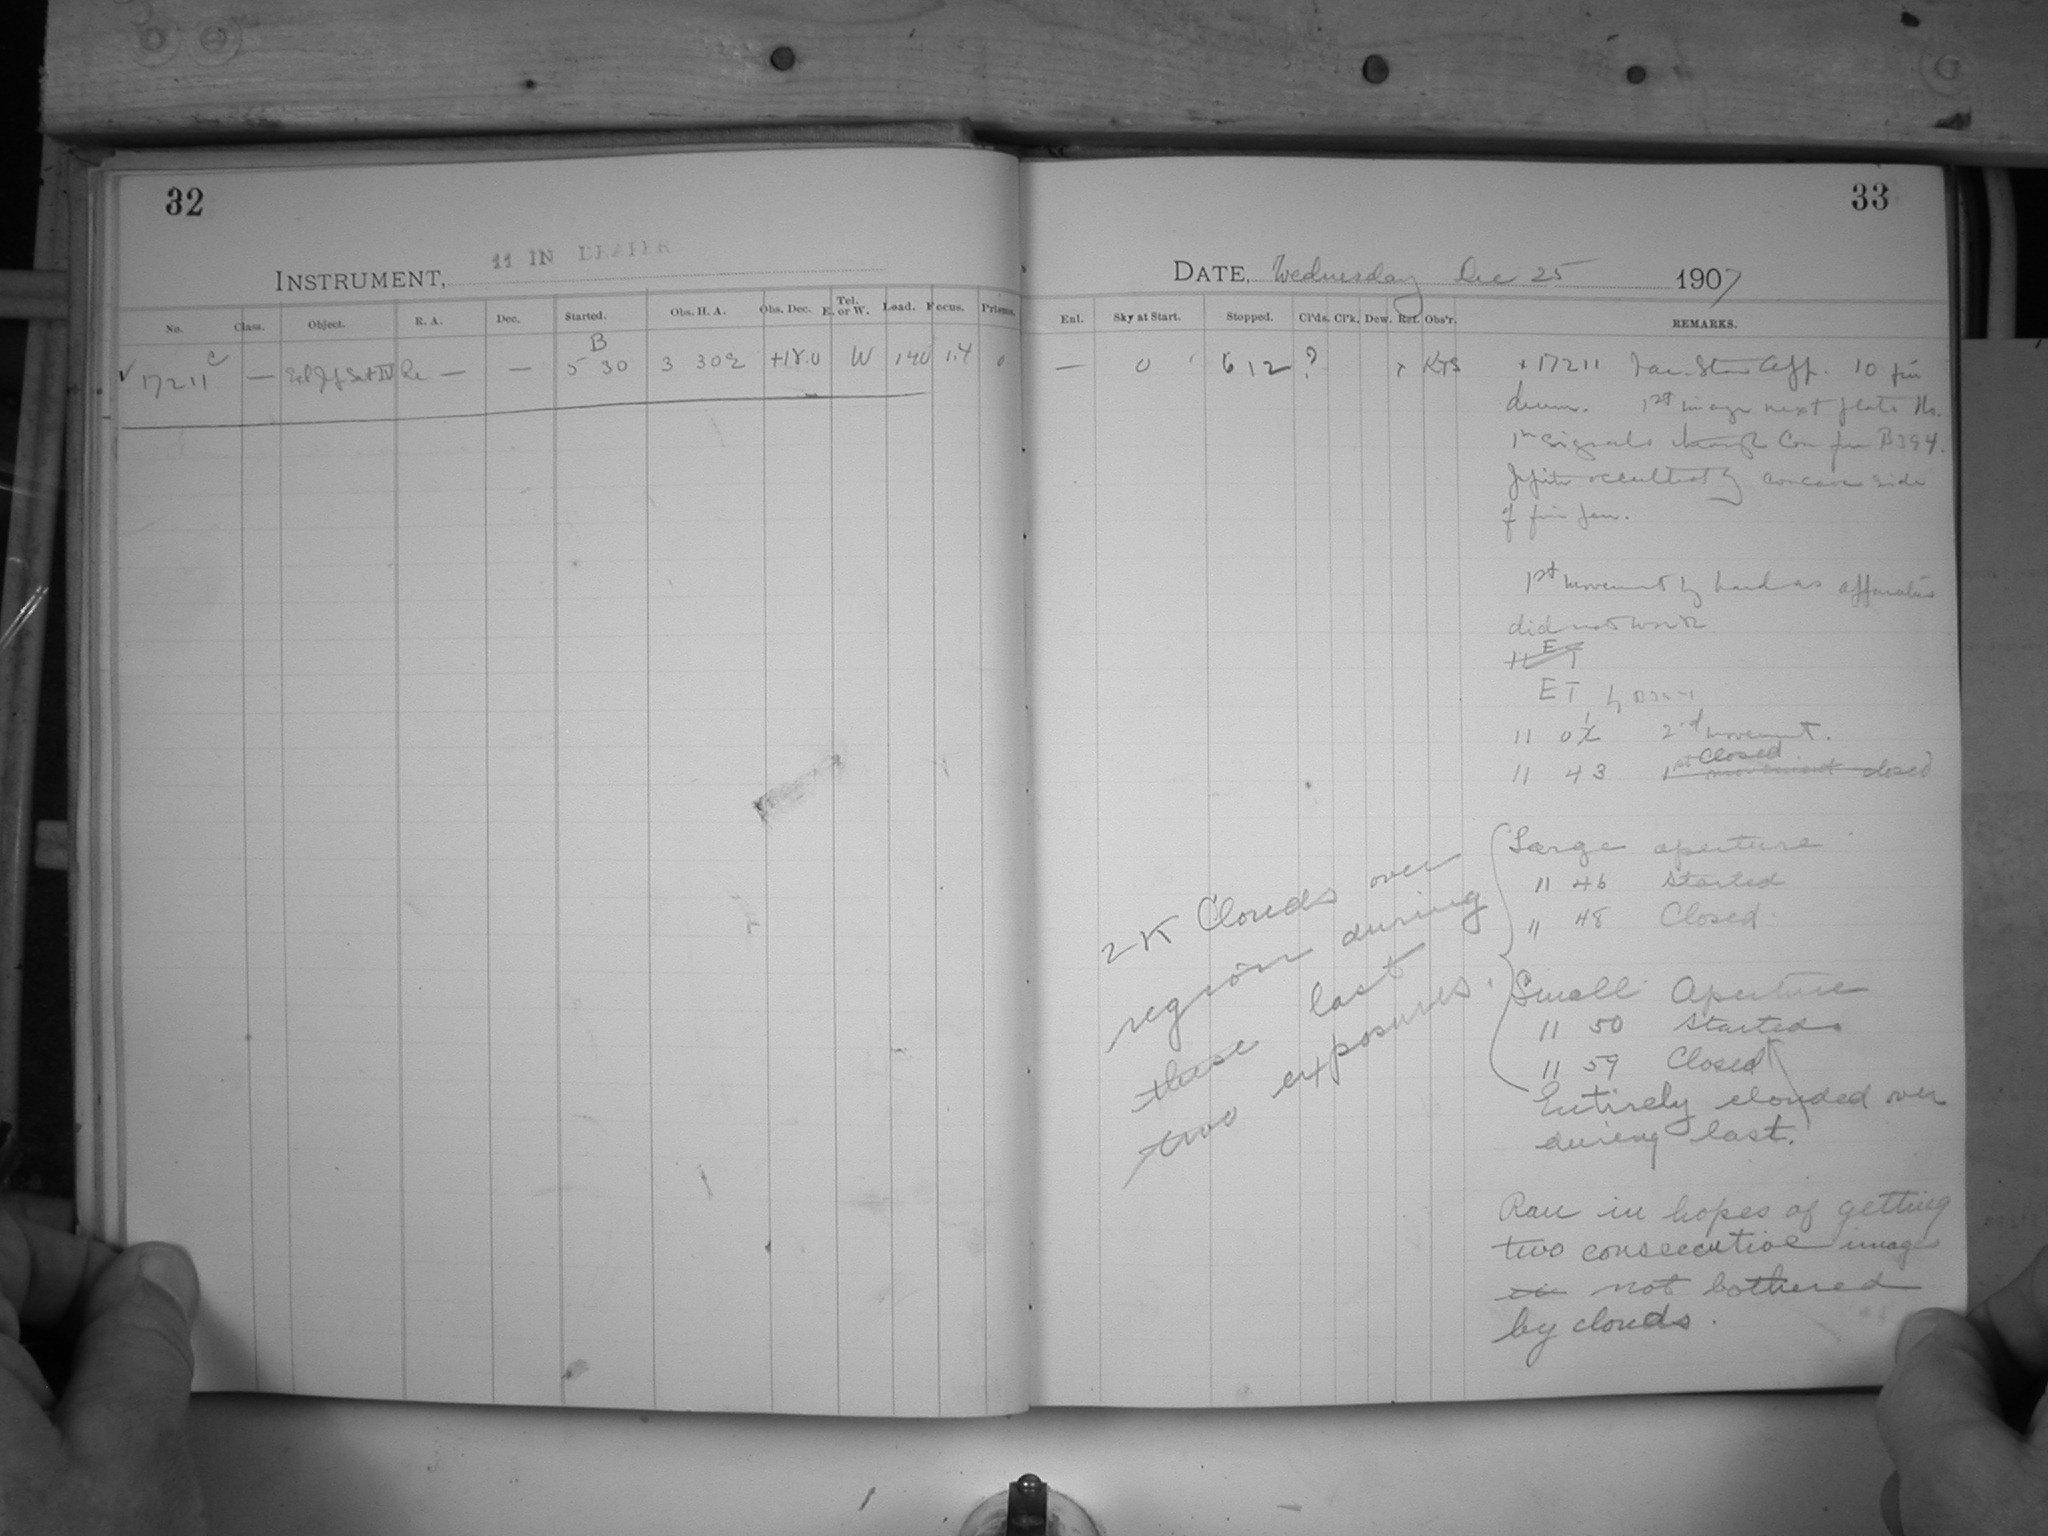 32
11 IN DRAPER
INSTRUMENT,
No. Class. Object. R. A. Dec. Started. Obs. H. A. Obs. Dec. Tel. E. or W. Load. Focus. Prisms.
B
17211 c — Ecl Jup Sat IV Re — — 5 30 3 30 2 +18.0 W 140 1.4 0
33
DATE, Wednesday Dec 25 1907
Enl. Sky at Start. Stopped. Cl'ds. Cl'k. Dew. Ref. Obs'r. REMARKS.
— 0 6 12 ? x KTS x 17211 Star App. 10
1st image next plate No.
signals through B394.
Jupiter occulted by concave side
of
1st movement by hand as apparatus
did not work
E T
E T by
11 01 2nd movement.
11 43 1st movement closed
Closed
Large aperture
11 46 Started
11 48 Closed
Small Aperture
11 50 Started
11 59 Closed
Entirely clouded over
during last.
2 K Clouds over
region during
these last
two exposures.
Ran in hopes of getting
two consecutive images
in not bothered
by clouds.